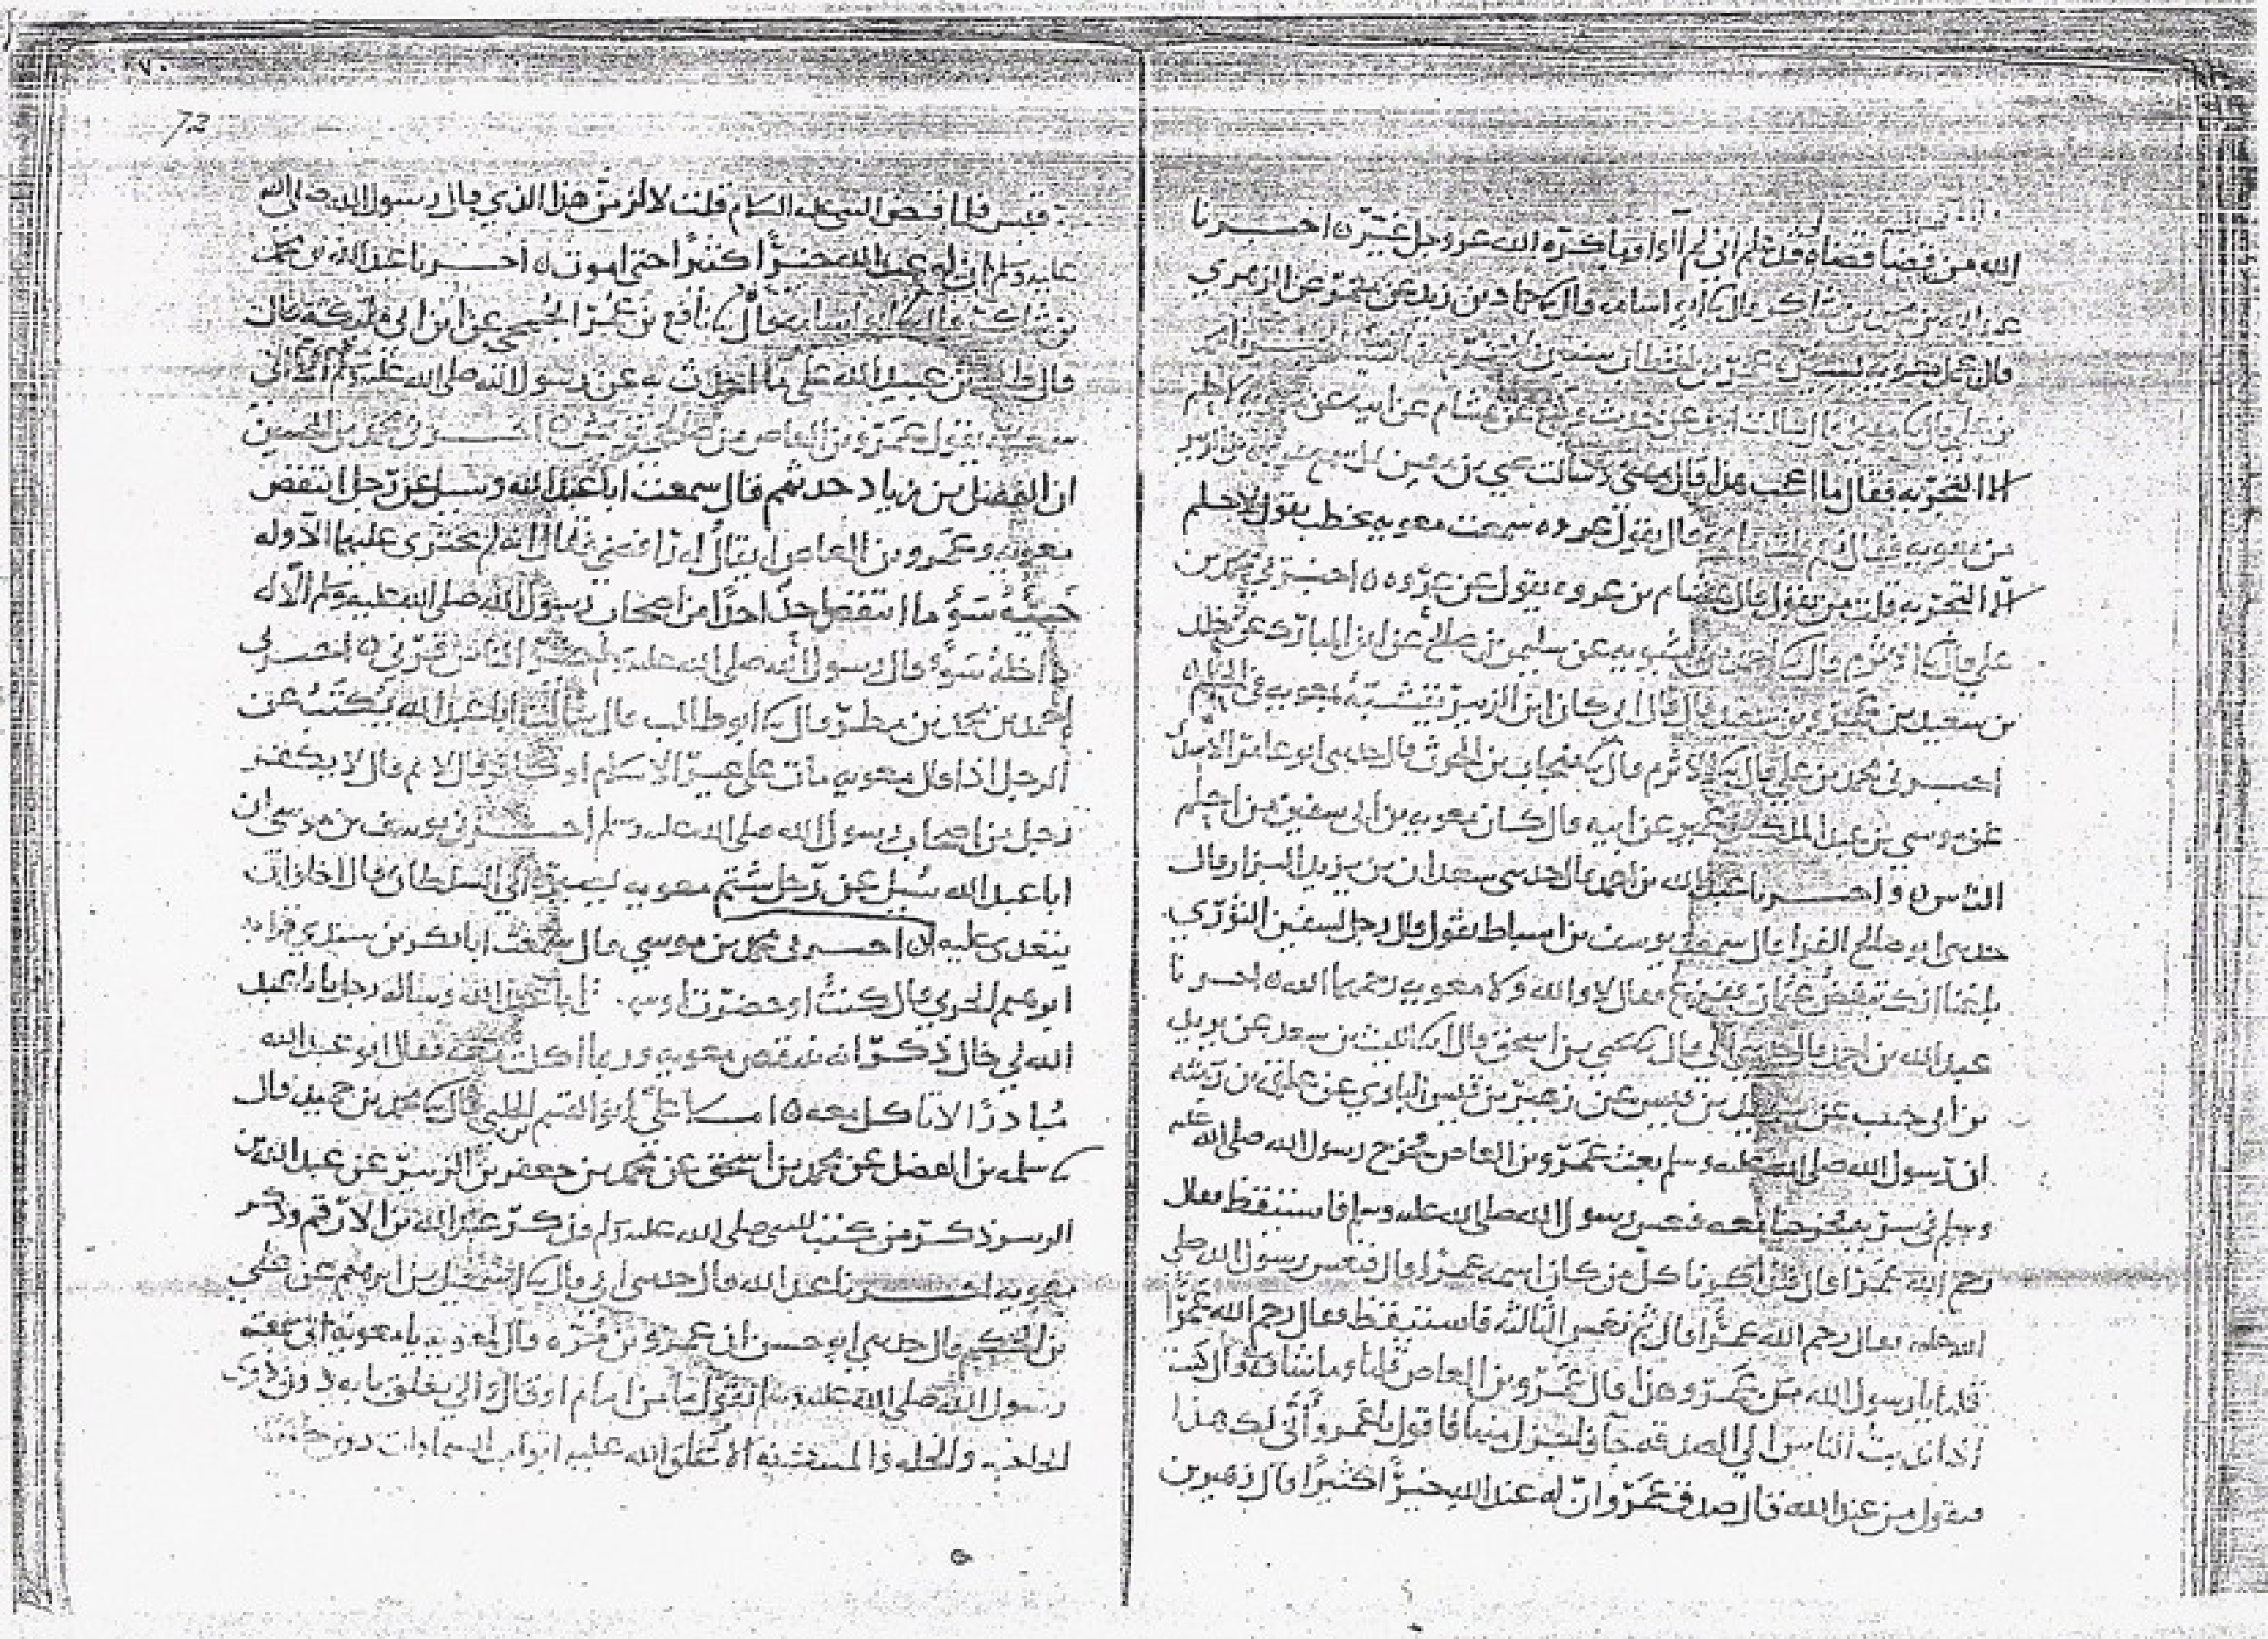 الله من قضا قضاه قد علم اني لم آل وما كره الله عز وجل غيّر ٥ اخبرنا
عبد الله بن محمد بن شاكر قال ثنا ابو اسامه قال ثنا حماد بن زيد عن معمر عن الزهري
قال عمل معويه بسيرة عمر بن الخطاب سنين لا يخرم منها شيئا
بن علي قال ثنا مهنى قال سالت احمد عن حديث وكيع عن هشام عن ابيه عن معويه لا حلم
الا التجربه فقال ما اعجب هذا قال مهنى وسالت يحيى بن معين
من معويه فقال قال يقول عروه سمعت معويه يخطب يقول لا حلم
الا التجربه قلت من يقول قال هشام بن عروه يقول عن عروه ٥ اخبرني محمد بن
علي قال ثنا الاثرم قال ثنا احمد بن شبويه عن سليمن بن صالح عن ابن المبارك عن خلد
بن سعيد بن عمرو بن سعيد قال قال ابي كان ابن الزبير يتشبه بمعويه في الحلم
اخبرني محمد بن علي قال ثنا الاثرم قال ثنا منجاب بن الحرث قال حدثني ابو عامر الاسدي
عن موسى بن عبد الملك بن عمير عن ابيه قال كان معويه بن ابي سفين من احلم
الناس ٥ واخبرنا عبد الله بن احمد قال حدثني سعدان بن يزيد البزار قال
حدثني ابو صالح الفرا قال سمعت يوسف بن اسباط يقول قال رجل لسفين الثوري
بلغنا انك تبغض عثمان ففزع فقال لا والله ولا معويه رحمهما الله ٥ اخبرنا
عبد الله بن احمد قال حدثني ابي قال ثنا يحيى بن اسحق قال انا الليث بن سعد عن يزيد
بن ابي حبيب عن سويد بن قيس عن زهير بن قيس البلوي عن علقمه بن رمثه
ان رسول الله صلى الله عليه وسلم بعث عمرو بن العاص فخرج رسول الله صلى الله عليه
وسلم في سريه فخرجنا معه فنعس رسول الله صلى الله عليه وسلم فاستيقظ فقال
رحم الله عمرا قال فتذاكرنا كل من كان اسمه عمرا قال فنعس رسول الله صلى
الله عليه فقال رحم الله عمرا قال ثم نعس الثالثه فاستيقظ فقال رحم الله عمرا
قلنا يا رسول الله من عمرو هذا قال عمرو بن العاص قلنا وما شانه قال كنت
اذا ندبت الناس الي الصدقه جا فاجزل منها فاقول يا عمرو اني لك هذا
فيقول من عند الله قال صدق عمرو ان له عند الله خيرا كثيرا قال زهير بن
٧٠
72
قيس فلما قبض النبي عليه السلام قلت لالزمن هذا الذي قال رسول الله صلى الله
عليه وسلم ان له عند الله خيرا كثيرا حتى اموت ٥ اخبرنا عبد الله بن محمد
بن شاكر قال ثنا ابو اسامه قال ثنا نافع بن عمر الجمحي عن ابن ابي مليكة قال
قال طلحه بن عبيد الله علي ما احدث به عن رسول الله صلى الله عليه وسلم الا اني
سمعته يقول عمرو بن العاص من صالحي قريش ٥ اخبرني محمد بن الحسين
ان الفضل بن زياد حدثهم قال سمعت ابا عبد الله وسيل عن رجل انتقص
معويه وعمرو بن العاص ايقال له رافضي فقال انه لم يجترى عليهما الا وله
خبيئة سوء ما انتقص احد احدا من اصحاب رسول الله صلى الله عليه وسلم الا له
داخلة سوء قال رسول الله صلى الله عليه وسلم خير الناس قرني ٥ اخبرني
احمد بن محمد بن مطر قال ثنا ابو طالب قال سالت ابا عبد الله يكتب عن
الرجل اذا قال معويه مات علي غير الاسلام او كافر قال لا ثم قال لا يكفر
رجل من اصحاب رسول الله صلى الله عليه وسلم اخبرني يوسف بن موسى ان
ابا عبد الله سئل عن رجل شتم معويه يصيره الي السلطان قال اخلق ان
يتعدى عليه ٥ اخبرني محمد بن موسي قال سمعت ابا بكر بن سندي قرابه
ابرهيم الحربي قال كنت او حضرت او سمعت ابا عبد الله وساله رجل يا ابا عبد
الله لي خال ذكر انه ينتقص معويه وربما اكلت معه فقال ابو عبد الله
مبادرا لا تاكل معه ٥ املا علي ابو القسم الجبلي قال ثنا محمد بن حميد قال
ثنا سلمه بن الفضل عن محمد بن اسحق عن محمد بن جعفر بن الزبير عن عبد الله بن
الزبير ذكر من كتب للنبي صلى الله عليه وسلم فذكر عبد الله بن الارقم وذكر
معويه اخبرنا عبد الله قال حدثني ابي قال ثنا اسمعيل بن ابرهيم عن علي
بن الحكم قال حدثني ابو حسن ان عمرو بن مره قال لمعويه يا معويه اني سمعت
رسول الله صلى الله عليه وسلم يقول ما من امام او قال وال يغلق بابه دون ذوي
الحاجه والخله والمسكنه الا اغلق الله عليه ابواب السماوات دون حاجته